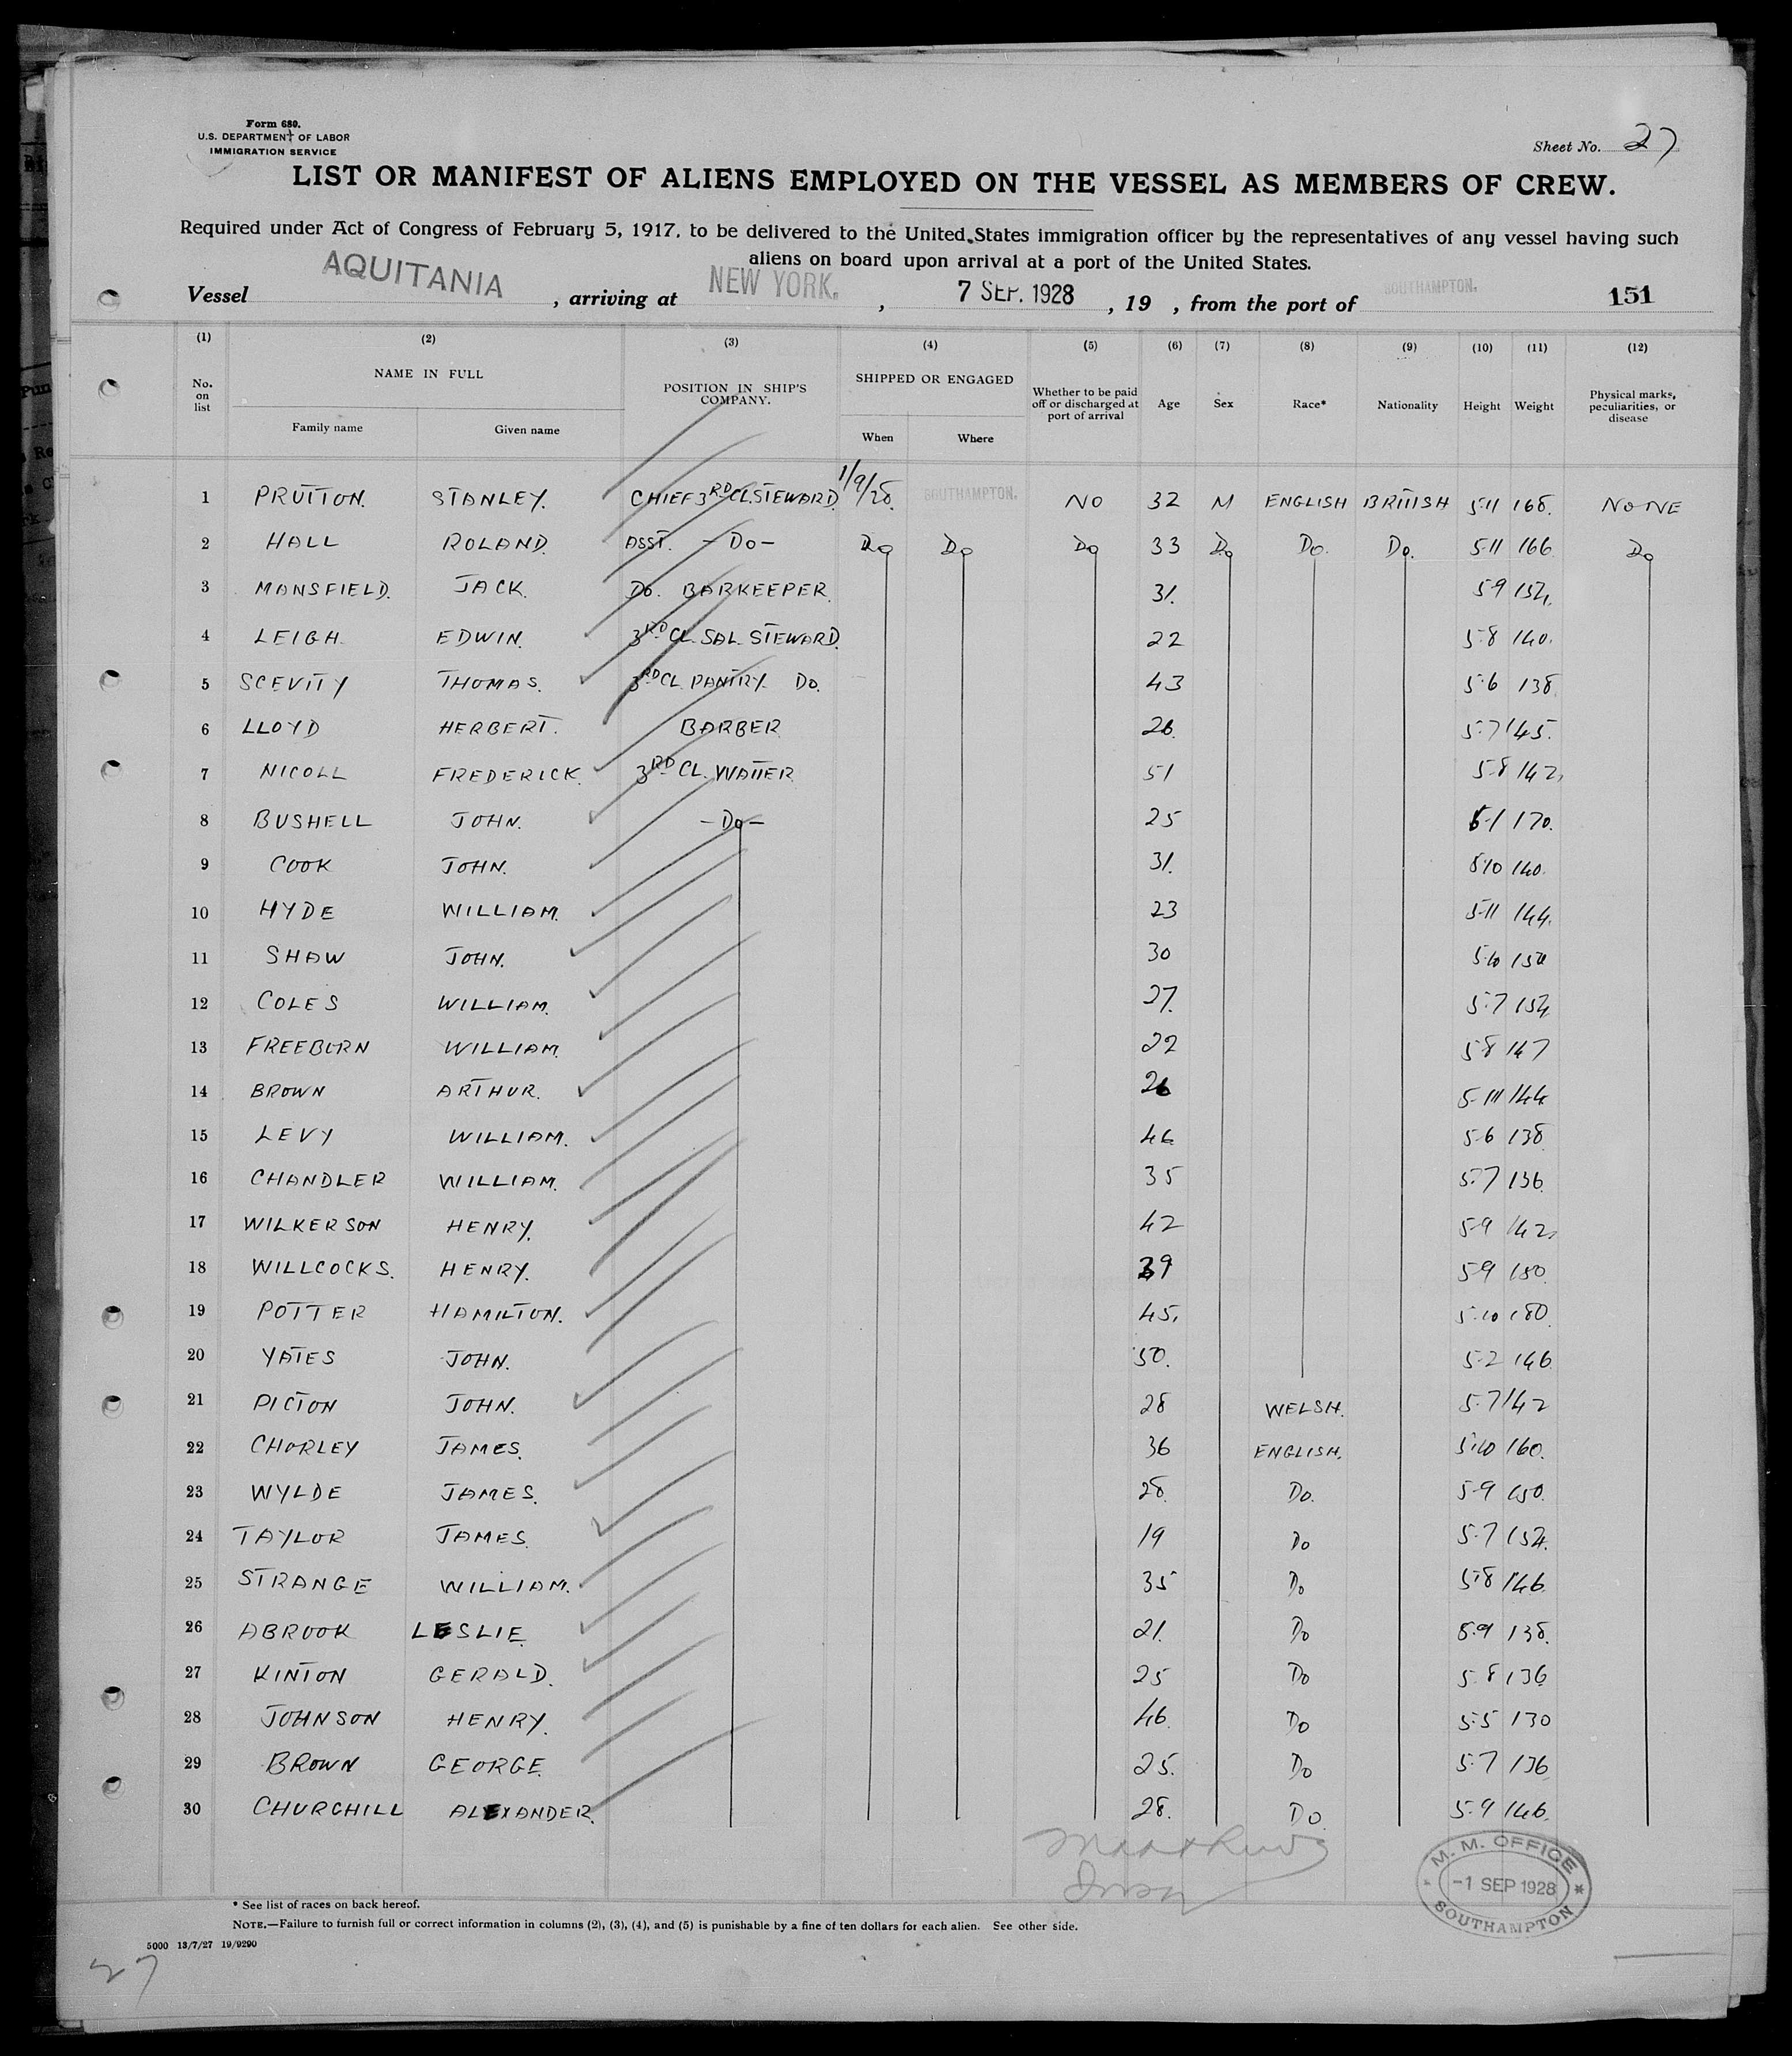 Form 680.
U.S. DEPARTMENT OF LABOR
IMMIGRATION SERVICE
Sheet No. 27
LIST OR MANIFEST OF ALIENS EMPLOYED ON THE VESSEL AS MEMBERS OF CREW.
Required under Act of Congress of February 5, 1917, to be delivered to the United States immigration officer by the representatives of any vessel having such
aliens on board upon arrival at a port of the United States.
Vessel AQUITANIA, arriving at NEW YORK., 7 SEP. 1928, 19 , from the port of SOUTHAMPTON. 151
(1) (2) (3) (4) (5) (6) (7) (8) (9) (10) (11) (12)
No. on list NAME IN FULL POSITION IN SHIP'S COMPANY. SHIPPED OR ENGAGED Whether to be paid off or discharged at port of arrival Age Sex Race* Nationality Height Weight Physical marks, peculiarities, or disease
Family name Given name When Where
1 PRUTTON. STANLEY. CHIEF 3RD CL. STEWARD. 1/9/28. SOUTHAMPTON. NO 32 M ENGLISH BRITISH 5-11 168. NONE
2 HALL ROLAND. ASST. -DO- DO DO DO 33 DO DO. DO. 5-11 166. DO
3 MANSFIELD. JACK. DO. BARKEEPER. 31. 5-9 154.
4 LEIGH. EDWIN. 3RD CL. SAL. STEWARD. 22 5-8 140.
5 SCEVITY THOMAS. 3RD CL. PANTRY. DO. 43 5-6 138.
6 LLOYD HERBERT. BARBER 26. 5-7 145.
7 NICOLL FREDERICK. 3RD CL. WAITER 51 5-8 142.
8 BUSHELL JOHN. -DO- 25 6-1 170.
9 COOK JOHN. 31. 5-10 140.
10 HYDE WILLIAM. 23 5-11 144.
11 SHAW JOHN. 30 5-10 150
12 COLES WILLIAM. 27. 5-7 154.
13 FREEBURN WILLIAM. 22 5-8 147
14 BROWN ARTHUR. 26 5-11 144
15 LEVY WILLIAM. 46 5-6 138
16 CHANDLER WILLIAM. 35 5-7 136.
17 WILKERSON HENRY. 42 5-9 142.
18 WILLCOCKS. HENRY. 39 5-9 150.
19 POTTER HAMILTON. 45. 5-10 180.
20 YATES JOHN. 50. 5-2 146.
21 PICTON JOHN. 28 WELSH. 5-7 142
22 CHORLEY JAMES. 36 ENGLISH. 5-10 160.
23 WYLDE JAMES. 28. DO. 5-9 150.
24 TAYLOR JAMES. 19 DO 5-7 154.
25 STRANGE WILLIAM. 35 DO 5-8 146.
26 ABROOK LESLIE. 21. DO 5-9 138.
27 KINTON GERALD. 25 DO 5-8 136
28 JOHNSON HENRY. 46. DO 5-5 130
29 BROWN GEORGE. 25. DO 5-7 136
30 CHURCHILL ALEXANDER. 28. DO. 5-9 146.
M. M. OFFICE
-1 SEP 1928
SOUTHAMPTON
* See list of races on back hereof.
NOTE.—Failure to furnish full or correct information in columns (2), (3), (4), and (5) is punishable by a fine of ten dollars for each alien. See other side.
5000 13/7/27 19/9290
27